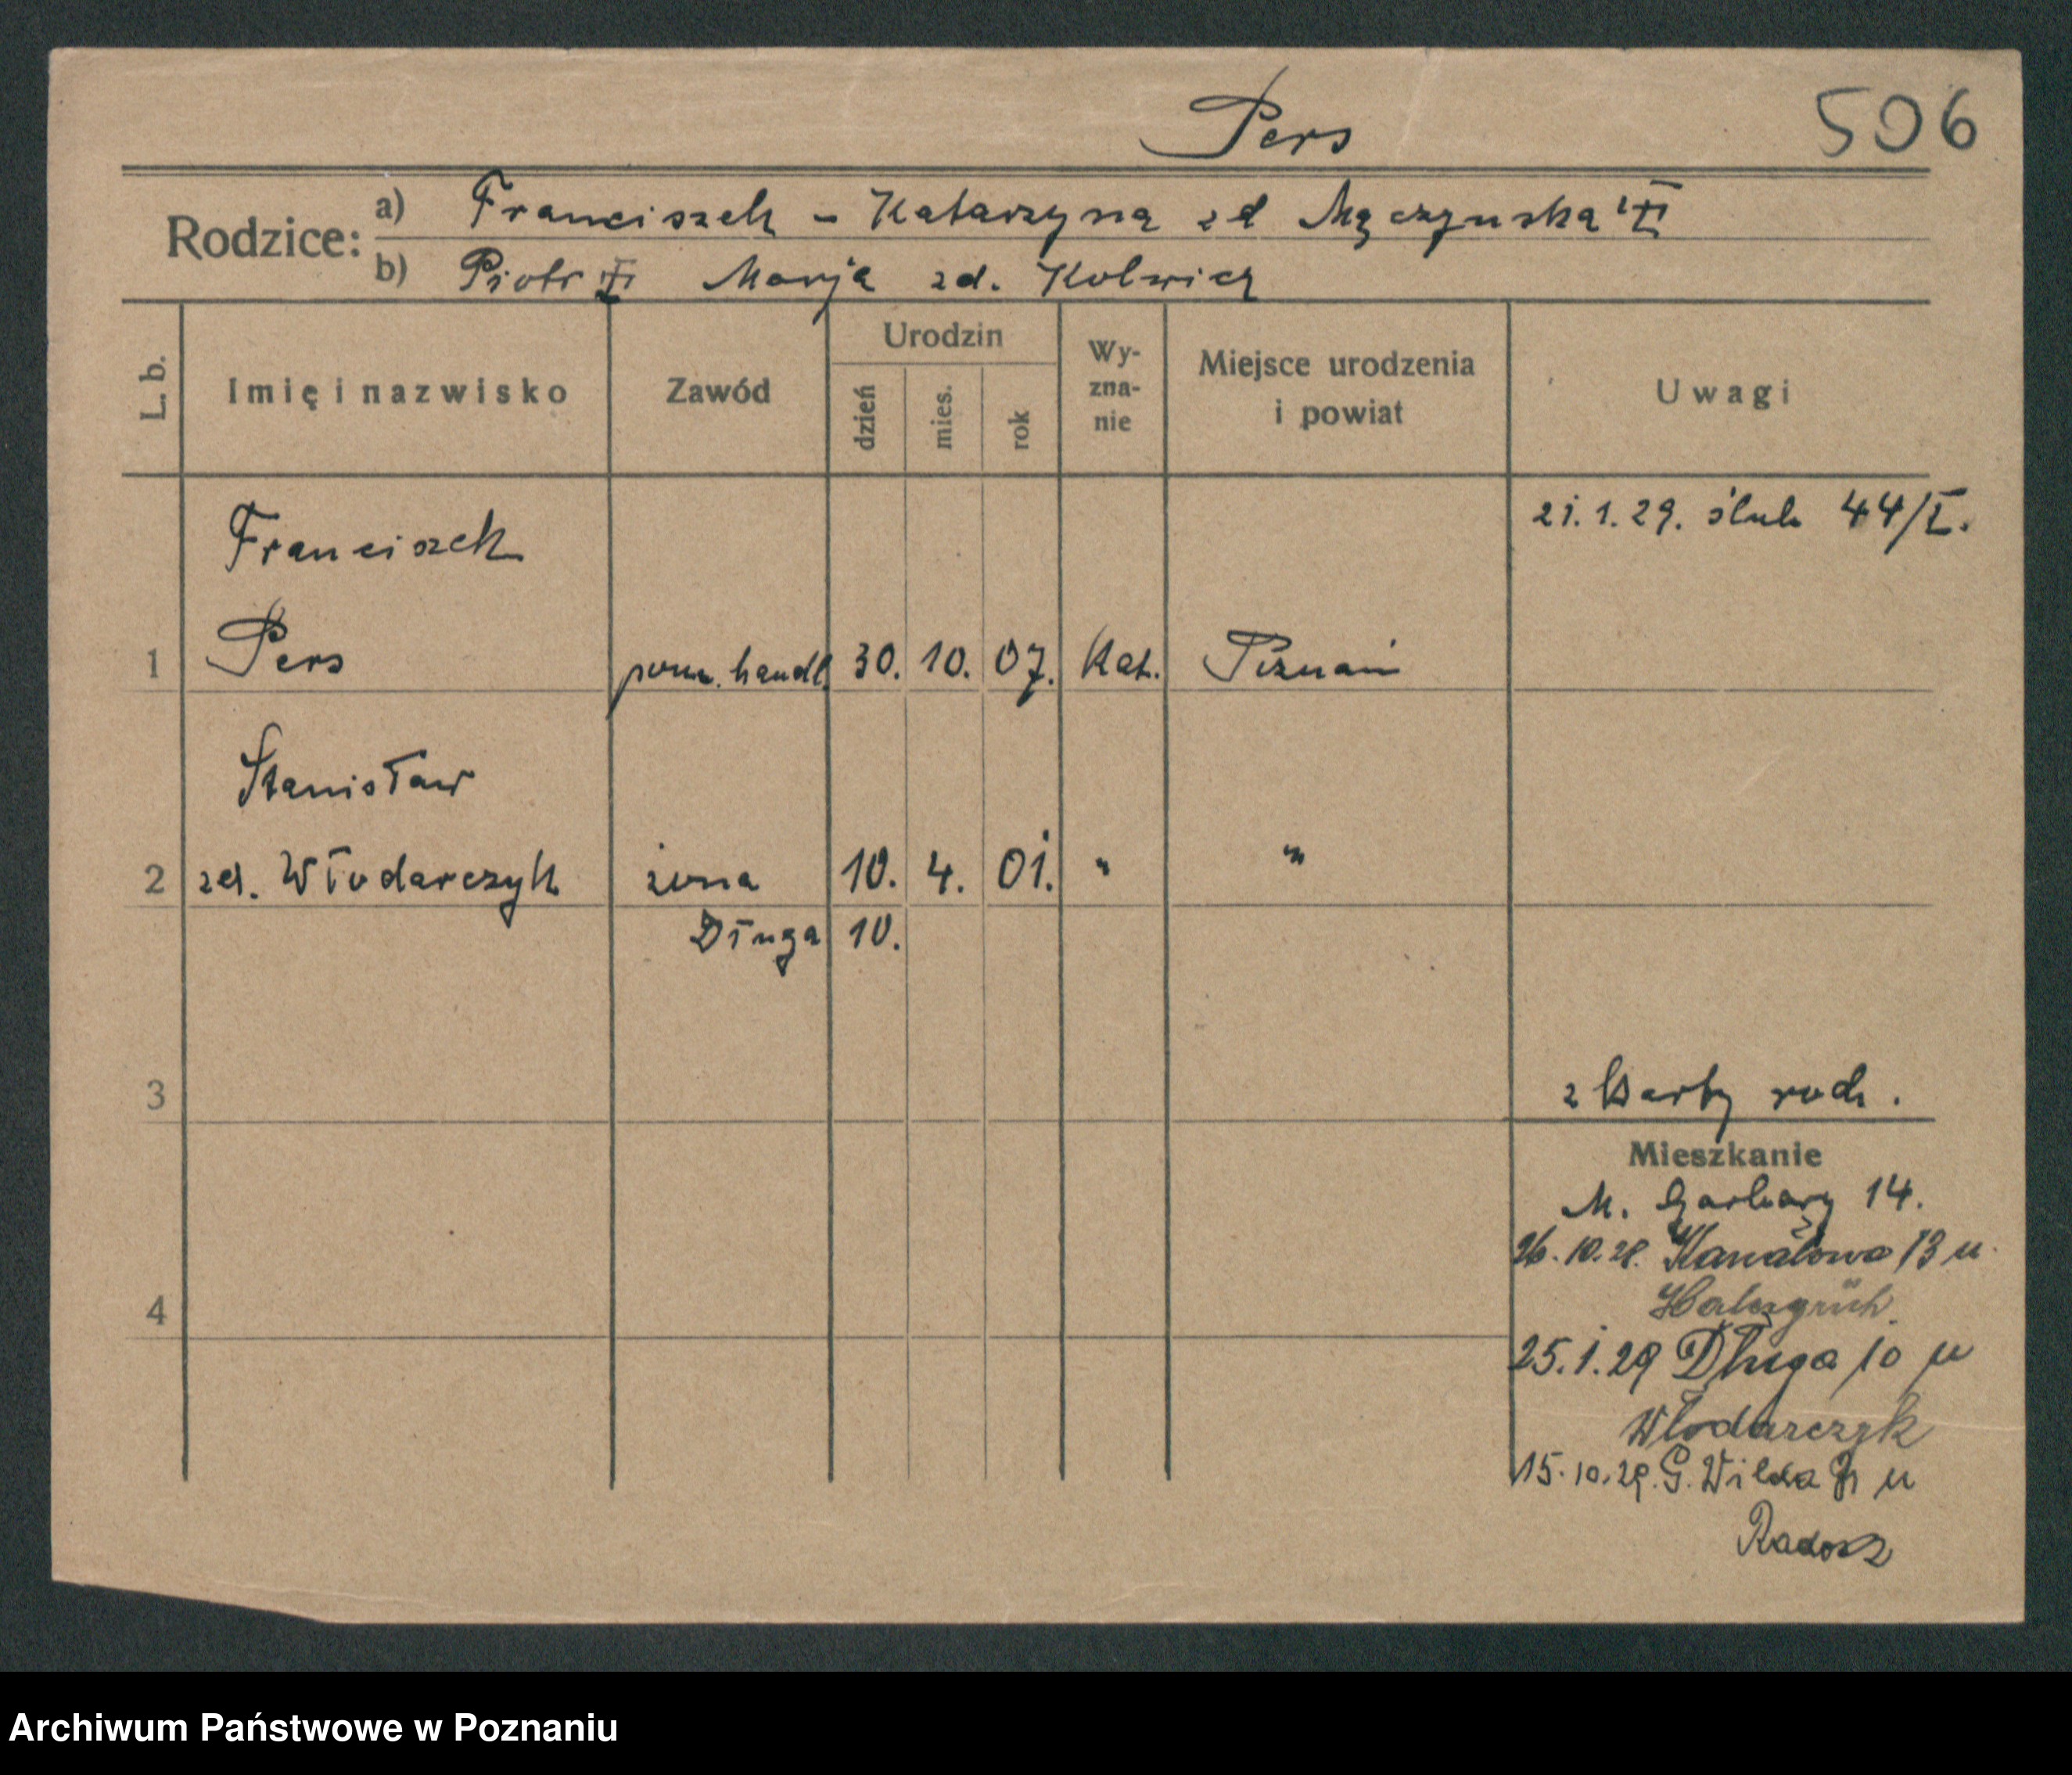 Pers
506
Rodzice:
a) Franciszek - Katarzyna zd Mączyńska
b) Piotr Marja zd.
L. b.
Imię i nazwisko
Zawód
Urodzin
dzień mies. rok
Wy-
zna-
nie
Miejsce urodzenia
i powiat
Uwagi
21.1.29. ślub 44/I.
Franciszek
1 Pers pom. handl. 30. 10. 07. Kat. Poznań
Stanisław
2 zd. Włodarczyk żona 10. 4. 01. " "
Długa 10.
3
z Karty rodz.
Mieszkanie
M. Garbary 14.
26.10.28. Kanałowa 13 u
4
25.1.29 Długa 10 u
Włodarczyk
15.10.29. G. Wilda u
Archiwum Państwowe w Poznaniu